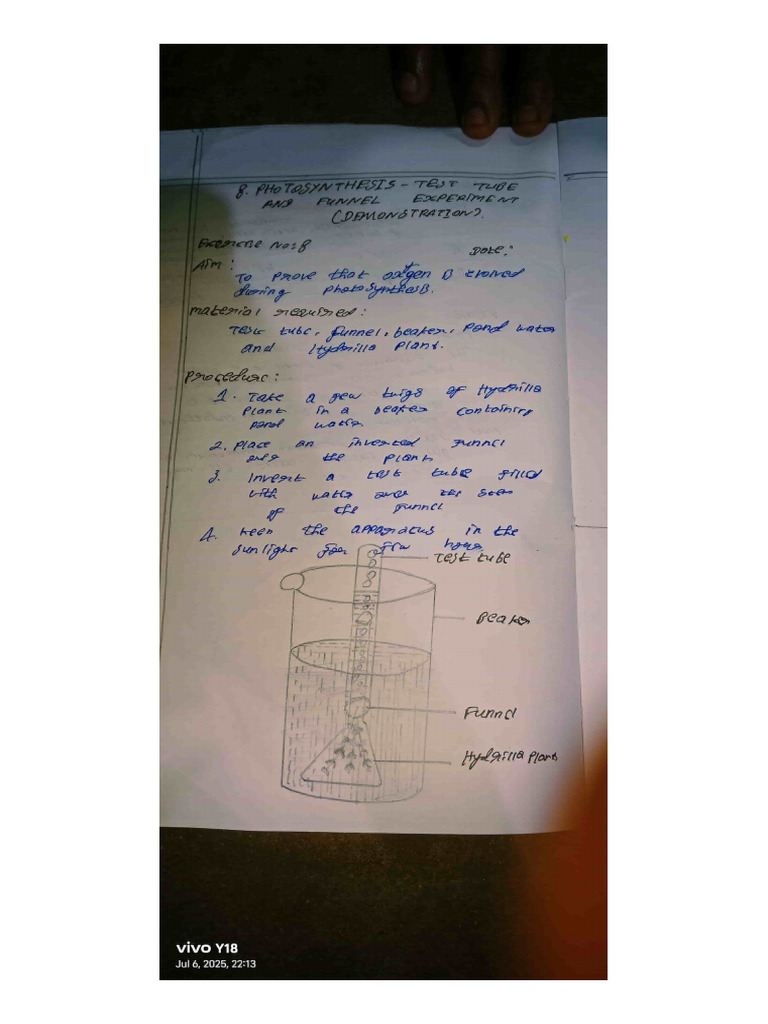 8. PHOTOSYNTHESIS - TEST TUBE
AND FUNNEL EXPERIMENT
(DEMONSTRATION).
Exercise No: 8
Date:
Aim:
To prove that oxygen is evolved
during photosynthesis.
material required:
Test tube, funnel, beaker, Pond water
and Hydrilla Plant.
Procedure:
1. Take a few twigs of Hydrilla
Plant in a beaker containing
pond water
2. Place an inverted funnel
over the plant
3. Invert a test tube filled
with water over the stem
of the funnel
4. keep the apparatus in the
sunlight for few hours
Test tube
Beaker
Funnel
Hydrilla Plant
vivo Y18
Jul 6, 2025, 22:13